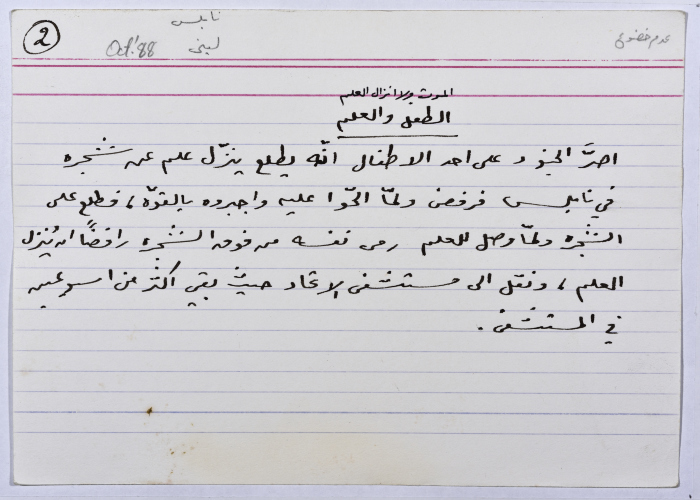 2
نابلس
لبنى Oct.'88
عدم خضوع
الموت ولا انزال العلم
الطفل والعلم
اصرَّ الجنود على احد الاطفال انّه يطلع ينزّل علم عن شجره
في نابلس فرفض ولمّا الحّوا عليه واجبروه بالقوّه، فطلع على
الشجره ولمّا وصل للعلم رمى نفسه من فوق الشجره رافضًا ان يُنزل
العلم، ونقل الى مستشفى الاتحاد حيث بقي اكثر من اسبوعين
في المستشفى.